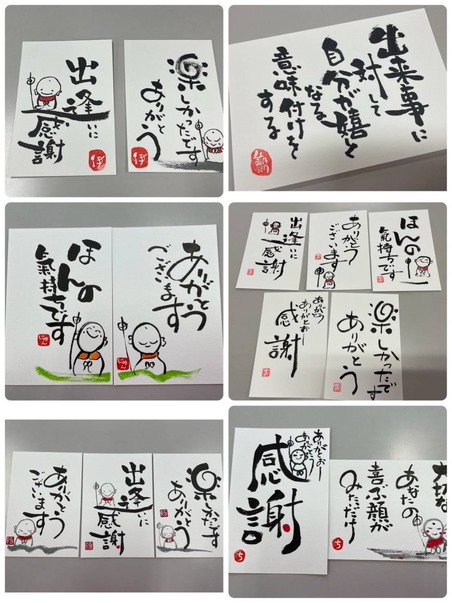 出逢いに
感謝
楽しかったです
ありがとう
出来事に
対して
自分が嬉しく
なる
意味付けを
する
ほんの
氣持ちです
ありがとう
ございます
出逢いに
感謝
ありがとう
ございます
ほんの
気持ちです
ありがとう
ありがとおー
感謝
楽しかったです
ありがとう
ありがとう
ございます
出逢いに
感謝
楽しかったです
ありがとう
ありがとおー
ありがとう
感謝
ち
大切な
あなたの
喜ぶ顔が
みたいだけ